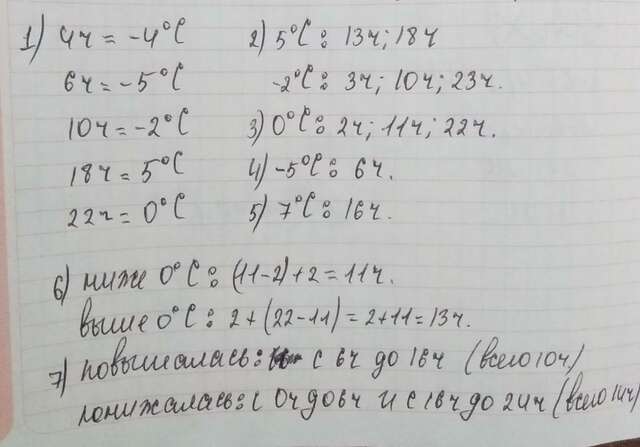 1) 4ч = -4°C 2) 5°C: 13ч; 18ч
6ч = -5°C -2°C: 3ч; 10ч; 23ч.
10ч = -2°C 3) 0°C: 2ч; 11ч; 22ч.
18ч = 5°C 4) -5°C: 6ч.
22ч = 0°C 5) 7°C: 16ч.
6) ниже 0°C: (11-2)+2=11ч.
выше 0°C: 2+(22-11)=2+11=13ч.
7) повышалась: с 6ч до 16ч (всего 10ч)
понижалась: с 0ч до 6ч и с 16ч до 24ч (всего 14ч)